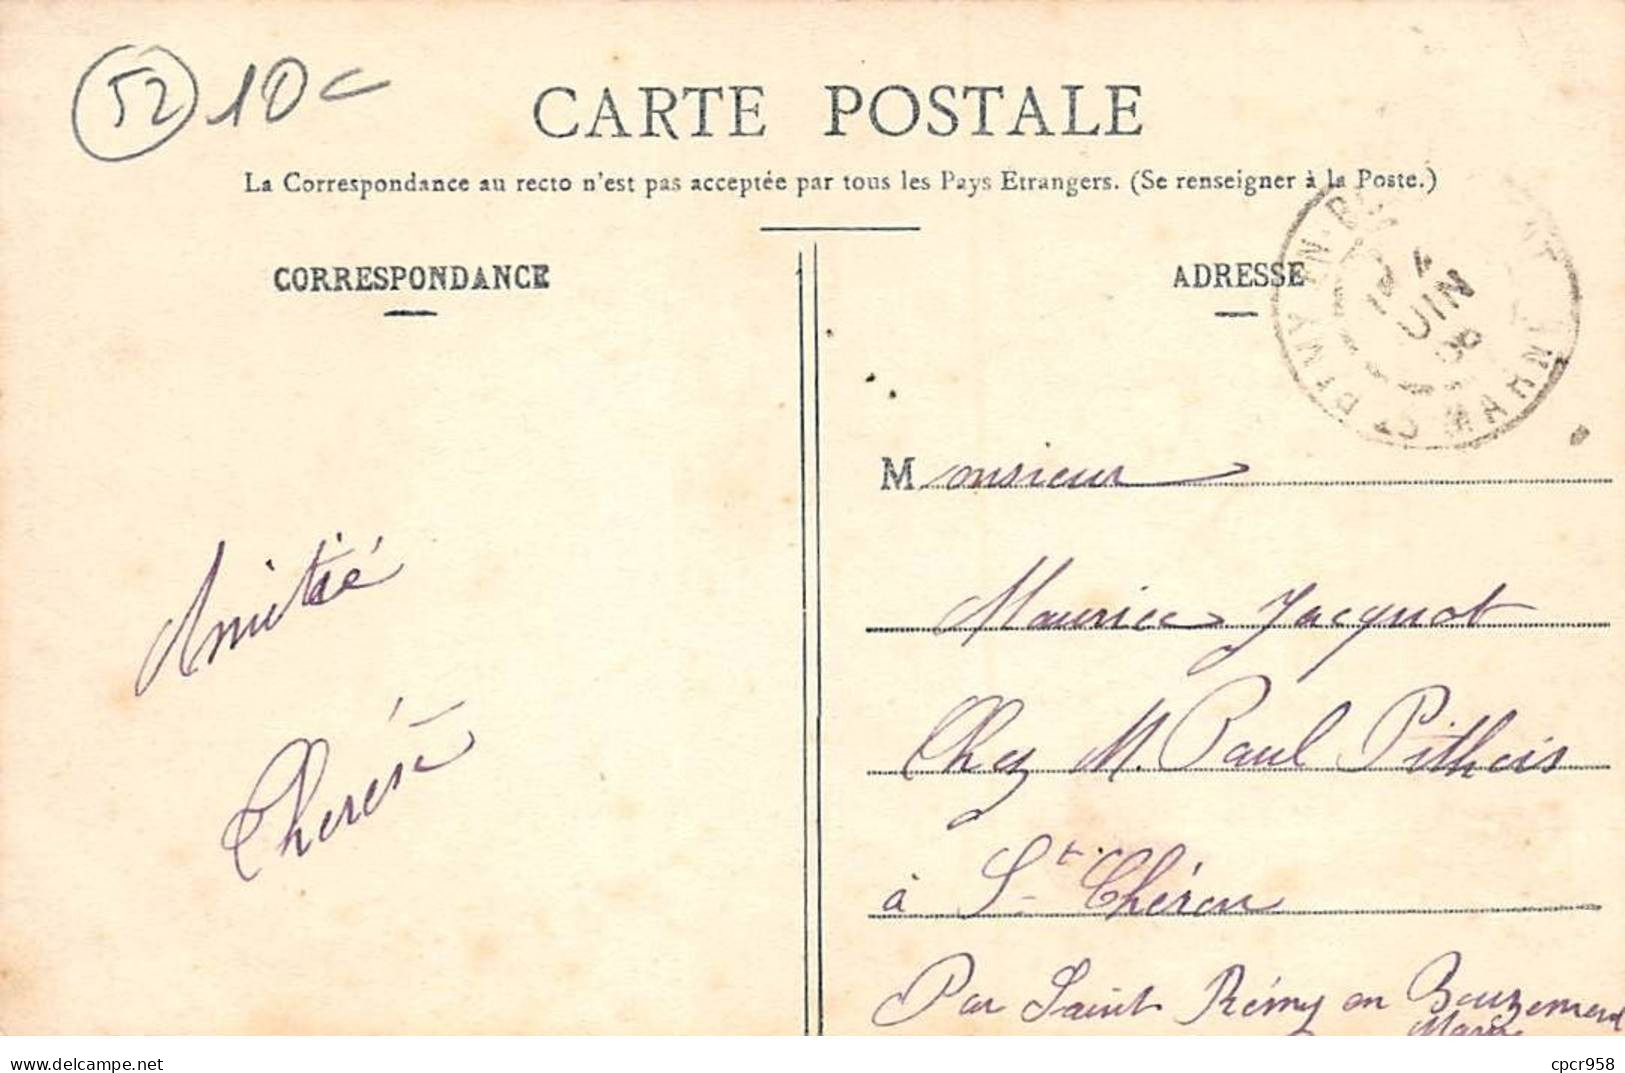 52 10c
CARTE POSTALE
La Correspondance au recto n'est pas acceptée par tous les Pays Etrangers. (Se renseigner à la Poste.)
CORRESPONDANCE
ADRESSE
JUIN
MARNE
Monsieur
Maurice Jacquot
Chez M. Paul Pithois
à St Chéron
Par Saint Rémy en Bouzemont
Marne
Amitié
Thérèse
cpcr958